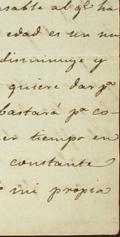 usable al qe ha
edad es un nu
disminuye y
quiere dar pa
bastará pa co-
er tiempo en
constante
mi propia